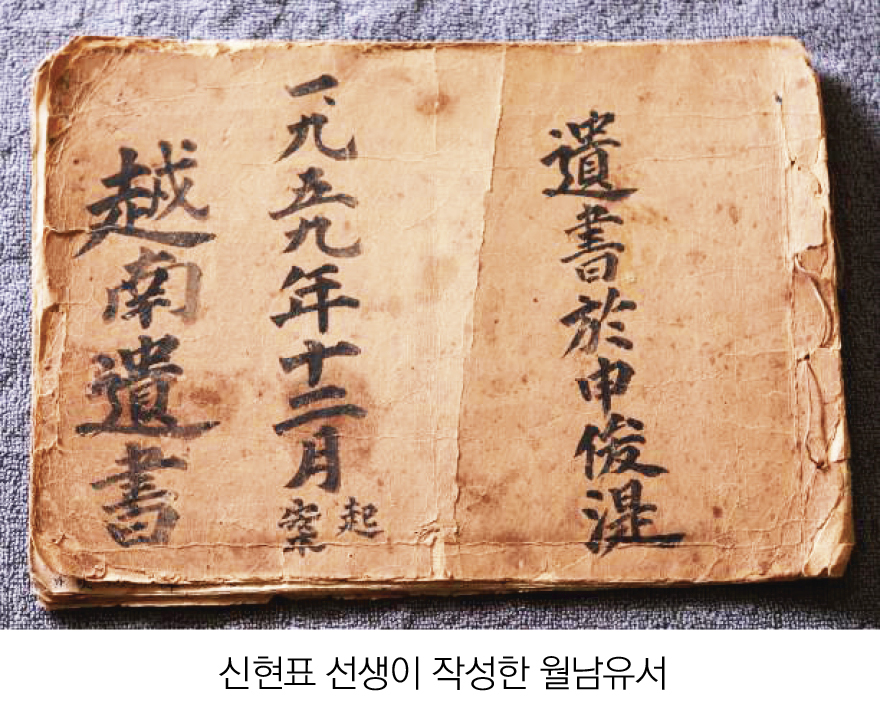 遺書於申俊湜
一九五九年十二月起案
越南遺書
신현표 선생이 작성한 월남유서